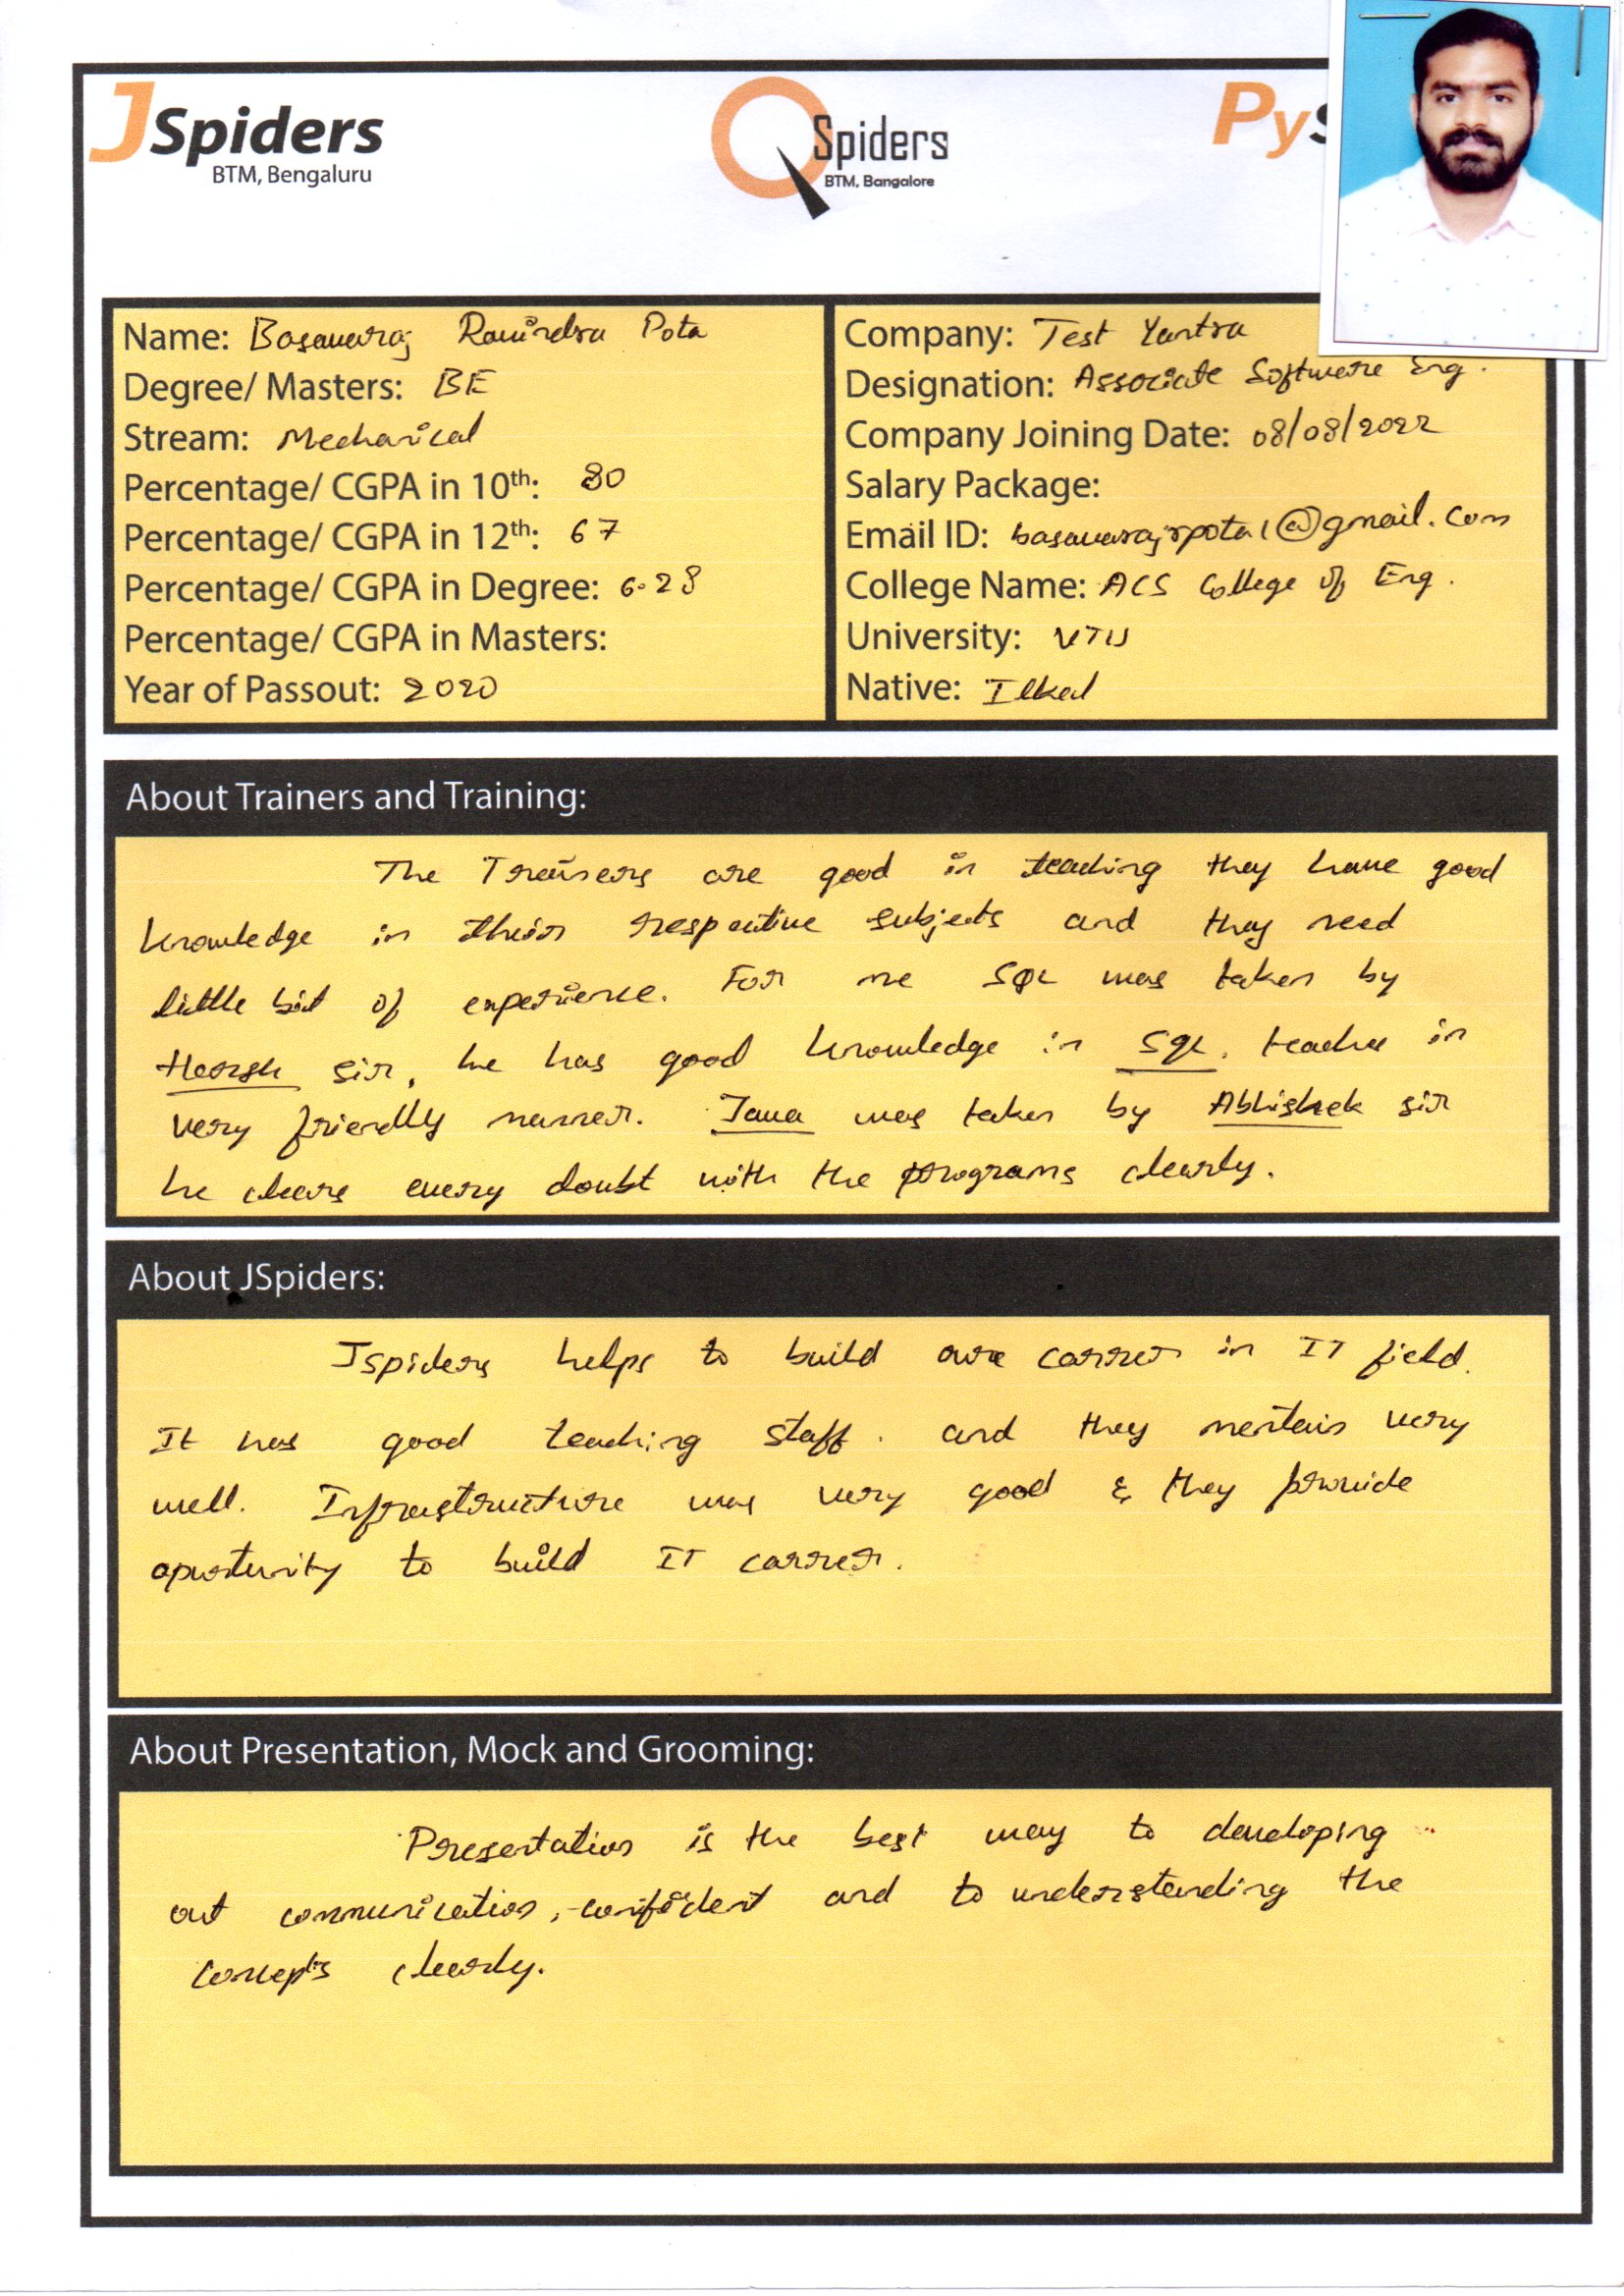 JSpiders
BTM, Bengaluru
QSpiders
BTM, Bangalore
PyS
Name: Basavaraj Ravindra Pota
Degree/ Masters: BE
Stream: Mechanical
Percentage/ CGPA in 10th: 80
Percentage/ CGPA in 12th: 67
Percentage/ CGPA in Degree: 6.28
Percentage/ CGPA in Masters:
Year of Passout: 2020
Company: Test Yantra
Designation: Associate Software Eng.
Company Joining Date: 08/08/2022
Salary Package:
Email ID: basavarajrpota1@gmail.com
College Name: ACS College of Eng.
University: VTU
Native: Ilkal
About Trainers and Training:
The Trainers are good in teaching they have good
knowledge in thier respective subjects and they need
little bit of experience. For me SQL was taken by
Harsh sir, he has good knowledge in SQL, teaches in
very friendly manner. Java was taken by Abhishek sir
he clears every doubt with the programs clearly.
About JSpiders:
Jspiders helps to build our carrer in IT field.
It has good teaching staff. and they mentain very
well. Infrastructure was very good & they provide
oportunity to build IT carrer.
About Presentation, Mock and Grooming:
Presentation is the best way to developing
out communication, confident and to understanding the
concepts clearly.